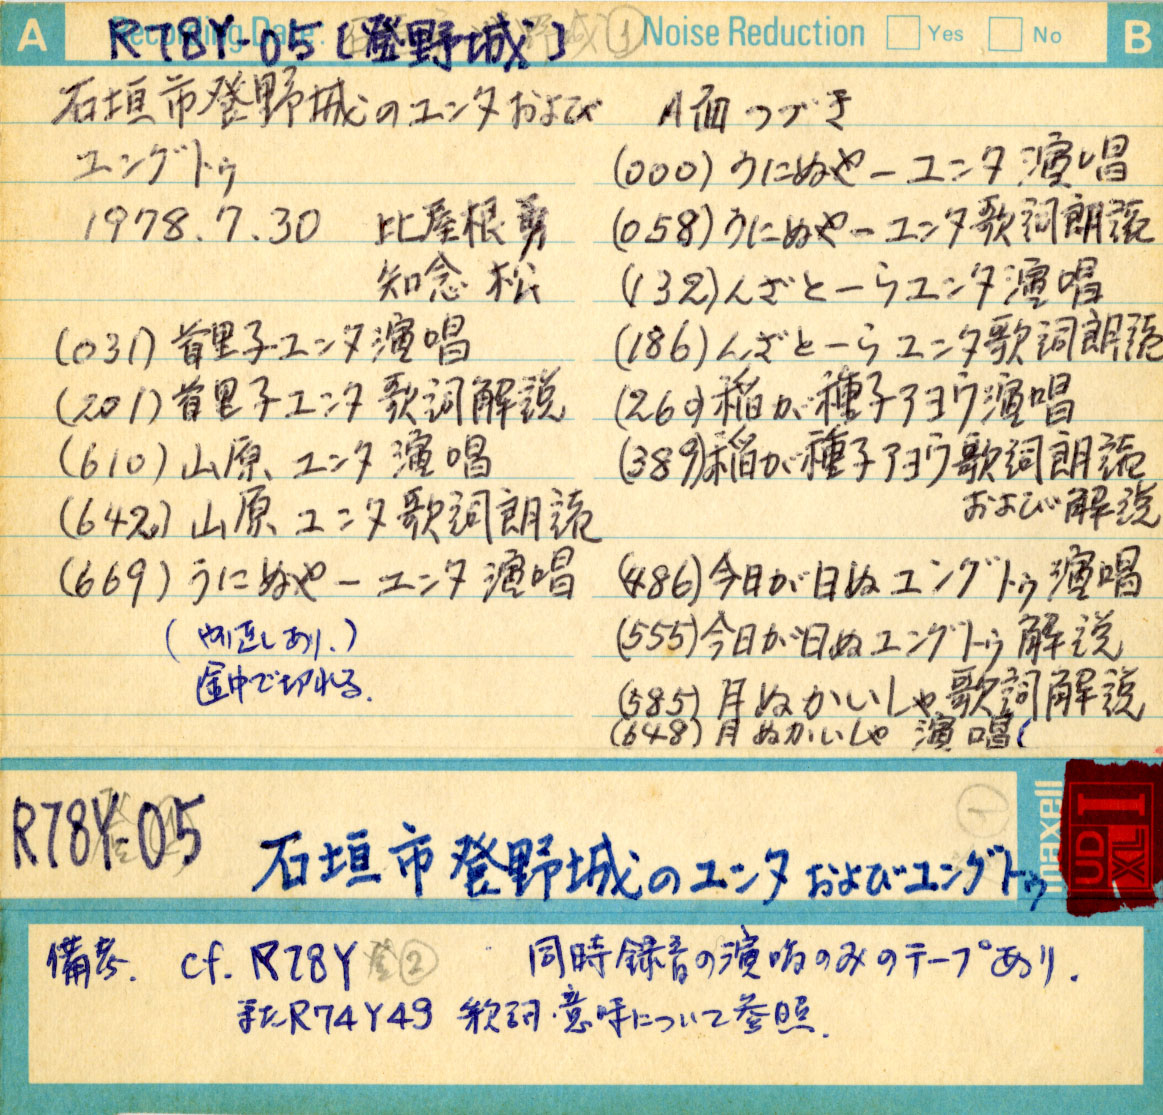 A
Recording Date:
R78Y-05〔登野城〕
①
Noise Reduction
Yes
No
B
石垣市登野城のユンタおよび
ユングトゥ
1978.7.30 比屋根勇
知念 松
(031) 首里子ユンタ演唱
(201) 首里子ユンタ歌詞解説
(610) 山原ユンタ演唱
(642) 山原ユンタ歌詞朗読
(669) うにぬやーユンタ演唱
途中で切れる.
A面つづき
(000) うにぬやーユンタ演唱
(058) うにぬやーユンタ歌詞朗読
(132) んざとーらユンタ演唱
(186) んざとーらユンタ歌詞朗読
(260) 稲が種子アヨウ演唱
(389) 稲が種子アヨウ歌詞朗読
および解説
(486) 今日が日ぬユングトゥ演唱
(555) 今日が日ぬユングトゥ解説
(585) 月ぬかいしゃ歌詞解説
(648) 月ぬかいしゃ 演唱
R78Y-05
石垣市登野城のユンタおよびユングトゥ
①
maxell
UD
XL I
備考. cf. R78Y 登② 同時録音の演唱のみのテープあり.
またR74Y49 歌詞・意味について参照.